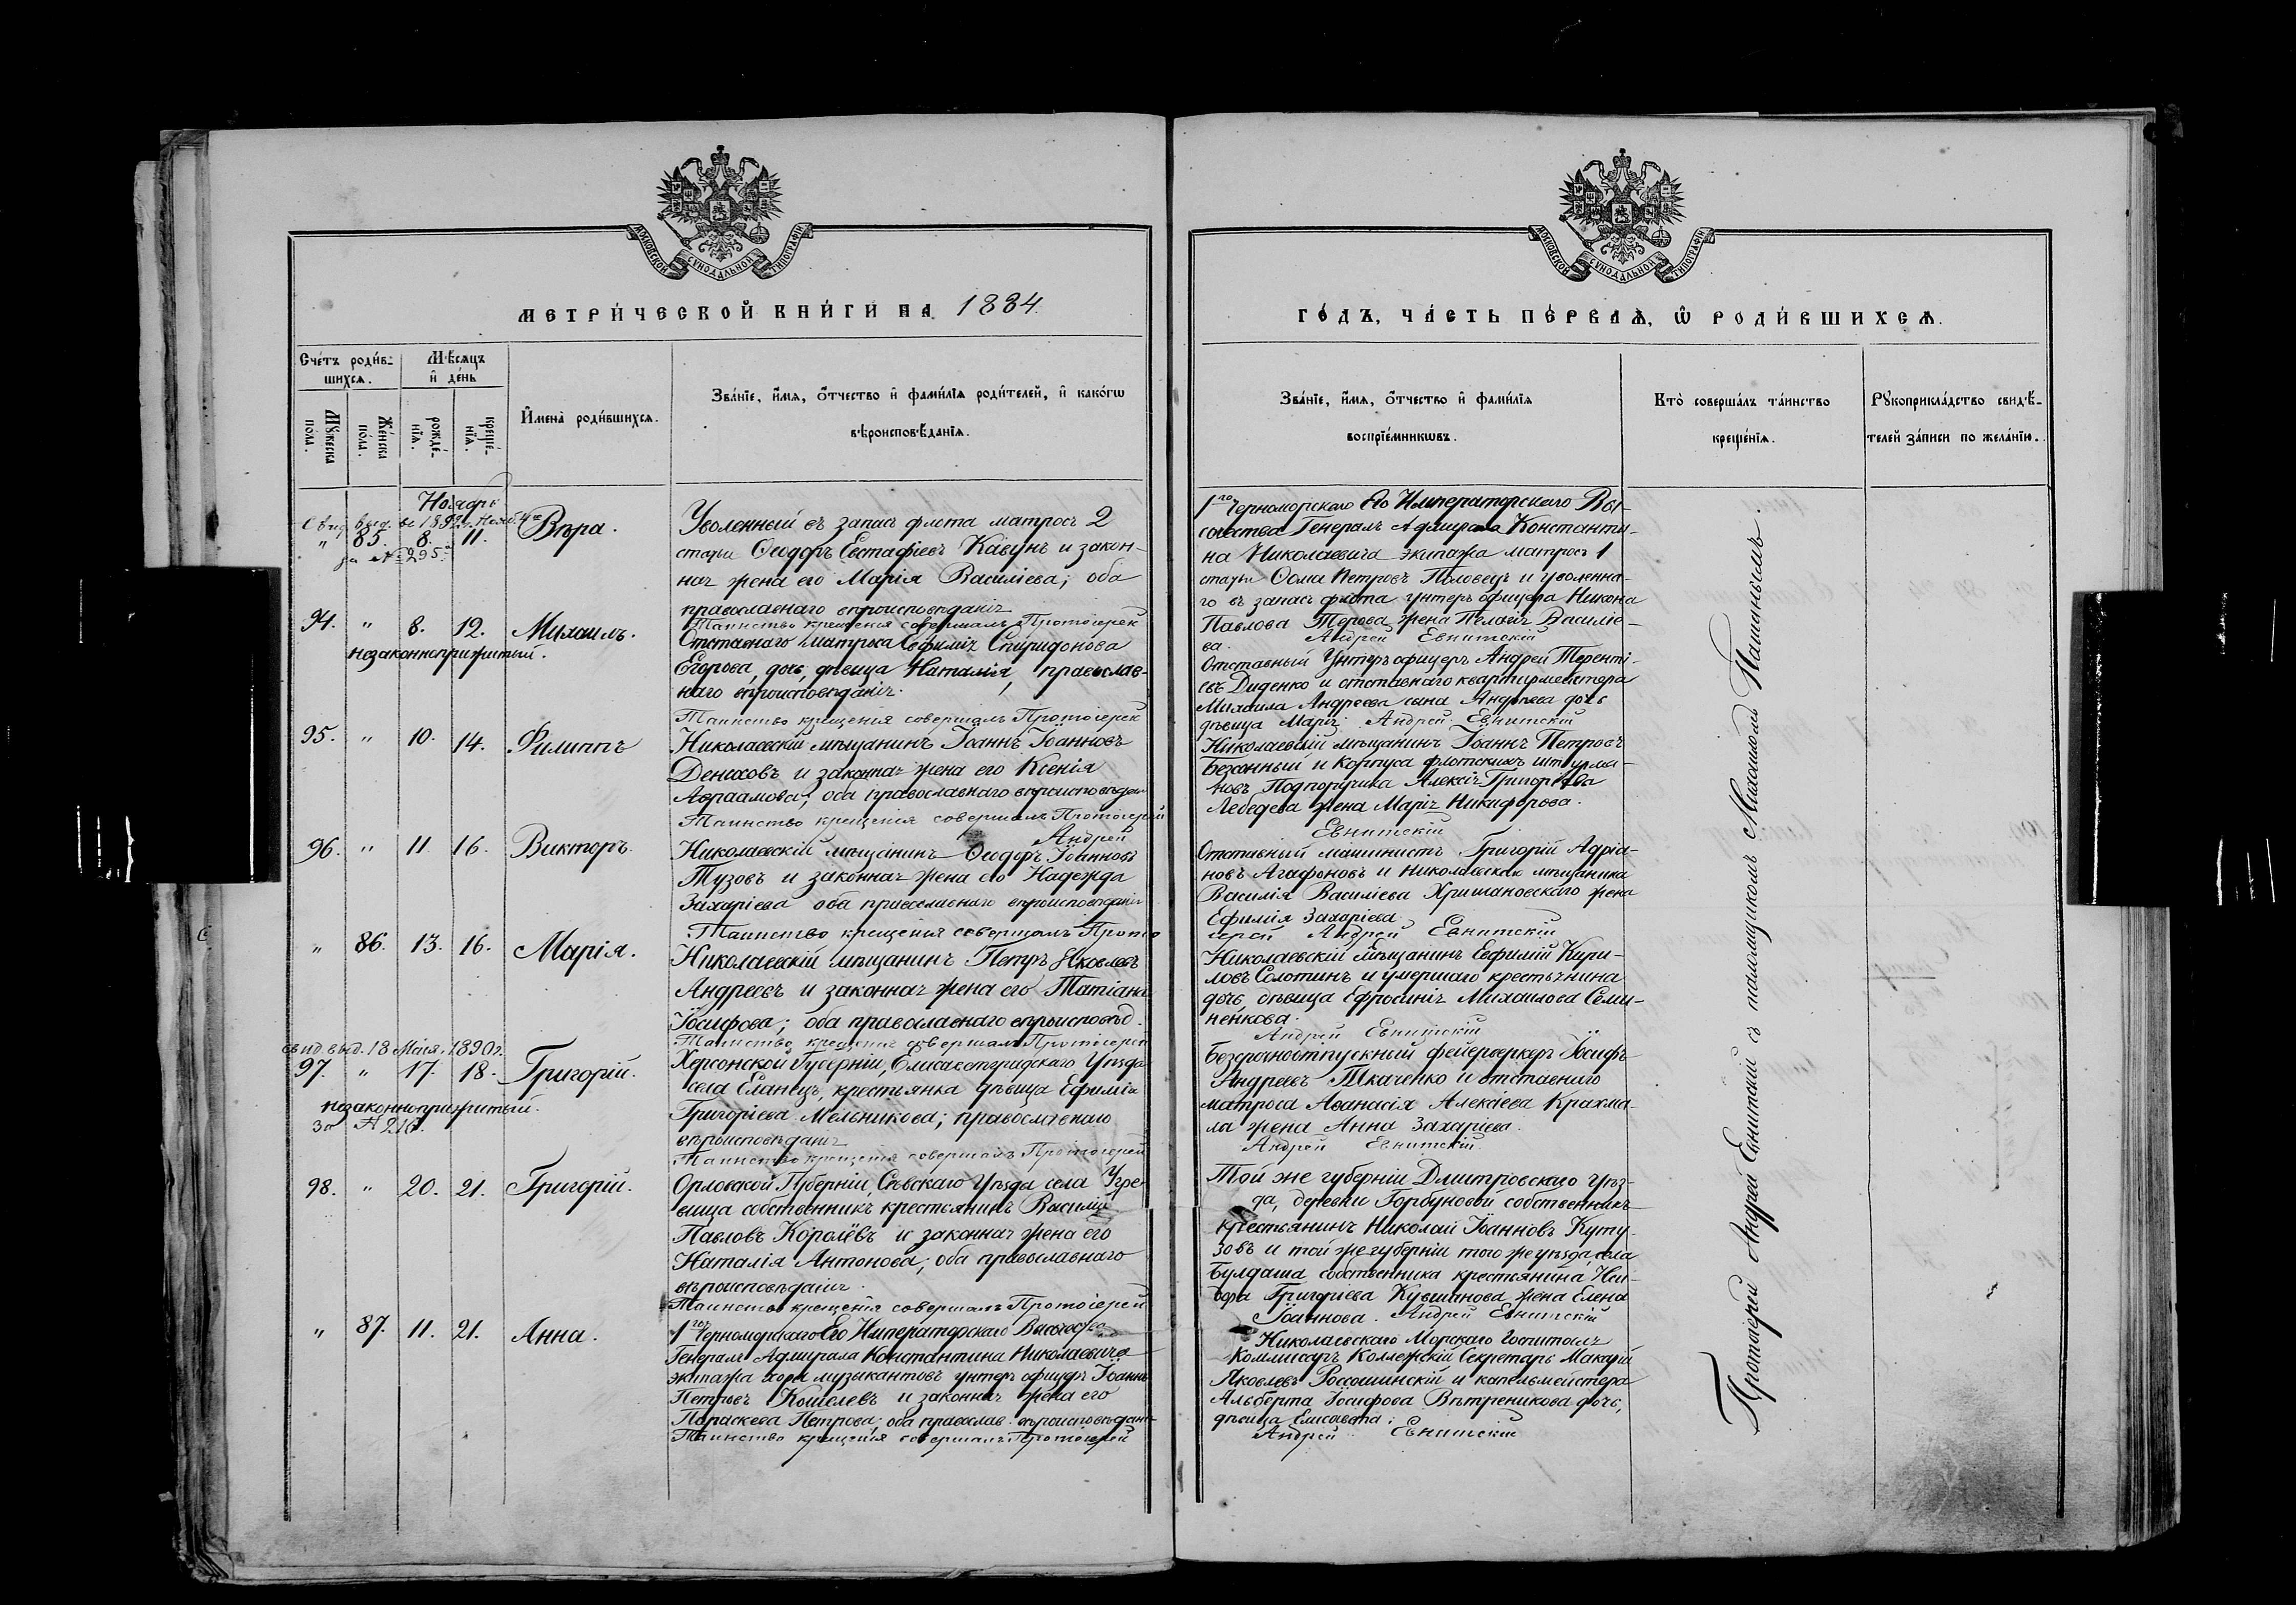 МОСКОВСКОЙ СѴНОДАЛЬНОЙ ТИПОГРАФІИ
МЕТРИ́ЧЕСКОЙ КНИ́ГИ НА 1884.
Сче́тъ роди́в-
шихся.
Мѣ́сяцъ
и̂ де́нь
Мꙋ́жеска
по́ла.
Же́нска
по́ла.
рожде́-
нїѧ.
креще́-
нїѧ.
И̂мена̀ роди́вшихсѧ.
Зва́нїе, и̂́мѧ, ѻ̂́тчество и̂ фами́лїѧ роди́телей, и̂ како́гѡ
вѣроисповѣ́данїѧ.
Ноябрь
Свид. выд. въ 1892 г. Нояб. 4го
" 85. 8. 11. Вѣра.
за №295.
Уволенный въ запас флота матросъ 2
статьи Ѳеодоръ Евстафіевъ Кавунъ и закон-
ная жена его Марія Василіева; оба
православнаго вѣроисповѣданія
Таинство крещенія совершалъ Протоіерей
94. " 8. 12. Михаилъ.
незаконноприжитый.
Отставнаго матроса Евфимія Спиридонова
Егорова, дочь, дѣвица Наталія, православ-
наго вѣроисповѣданія.
Таинство крещенія совершалъ Протоіерей
95. " 10. 14. Филиппъ
Николаевскій мѣщанинъ Іоаннъ Іоанновъ
Денеховъ и законная жена его Ксенія
Авраамова; оба православнаго вѣроисповѣдан
Таинство крещенія совершалъ Протоіерей
Андрей
96. " 11. 16. Викторъ.
Николаевскій мѣщанинъ Ѳеодоръ Іоанновъ
Тузовъ и законная жена его Надежда
Захаріева оба православнаго вѣроисповѣданія
Таинство крещенія совершалъ Прото
" 86. 13. 16. Марія.
Николаевскій мѣщанинъ Петръ Яковлевъ
Андреевъ и законная жена его Татіана
Іосифова; оба православнаго вѣроисповѣд.
Таинство крещенія совершалъ Протоіерей
свид. выд. 18 Мая. 1890 г.
97. " 17. 18. Григорій.
незаконноприжитый.
За № 216.
Херсонской Губерніи, Елисаветградскаго Уѣзда
села Еланецъ, крестьянка дѣвица Ефимія
Григоріева Мельникова; православнаго
вѣроисповѣданія
Таинство крещенія совершалъ Протоіерей
98. " 20. 21. Григорій.
Орловской Губерніи, Сѣвскаго Уѣзда села Угре-
вища собственникъ крестьянинъ Василій
Павловъ Королёвъ и законная жена его
Наталія Антонова; оба православнаго
вѣроисповѣданія.
Таинство крещенія совершалъ Протоіерей
" 87. 11. 21. Анна.
1го Черноморскаго Его Императорскаго Высочества
Генералъ Адмирала Константина Николаевича
экипажа хора музыкантовъ унтеръ офицеръ Іоаннъ
Петровъ Кошелевъ и законная жена его
Параскева Петрова; оба православ. вѣроисповѣдан-
Таинство крещенія совершалъ Протоіерей
МОСКОВСКОЙ СѴНОДАЛЬНОЙ ТИПОГРАФІИ
ГО́ДЪ, ЧА́СТЬ ПЕ́РВАѦ, Ѡ҆ РОДИ́ВШИХСѦ.
Зва́нїе, и̂́мѧ, ѻ̂́тчество и̂ фами́лїѧ
воспрїе́мникѡвъ.
Кто̀ соверша́лъ та́инство
креще́нїѧ.
Рꙋкоприкла́дство свидѣ́-
телей за́писи по жела́нїю.
1го Черноморскаго Его Императорскаго Вы-
сочества Генералъ Адмирала Константи-
на Николаевича экипажа матросъ 1
статьи Ѳома Петровъ Половецъ и уволенна-
го въ запасъ флота унтеръ офицера Никона
Павлова Терова жена Пелагія Василіе-
ва. Андрей Евнитскій
Отставный Унтеръ офицеръ Андрей Теренті-
евъ Диденко и отставнаго квартирмейстера
Михаила Андреева сына Андреева дочь
дѣвица Марія. Андрей Евнитскій
Николаевскій мѣщанинъ Іоаннъ Петровъ
Безсонный и Корпуса флотскихъ штурма-
новъ Подпоручика Алексія Григоріева
Лебедева жена Марія Никифорова.
Евнитскій
Отставный машинистъ Григорій Адріа-
новъ Агафоновъ и Николаевскаго мѣщанина
Василія Василіева Хришановскаго жена
Ефимія Захаріева
іерей Андрей Евнитскій
Николаевскій мѣщанинъ Евфимій Кири-
ловъ Солотинъ и умершаго крестьянина
дочь дѣвица Ефросинія Михаилова Семи-
ненкова.
Андрей Евнитскій
Безсрочноотпускный фейерверкеръ Іосифъ
Андреевъ Ткаченко и отставнаго
матроса Аѳанасія Алексіева Крахма-
ла жена Анна Захаріева.
Андрей Евнитскій
Той же губерніи Дмитровскаго уѣз-
да, деревни Горбуновой собственникъ
крестьянинъ Николай Іоанновъ Куту-
зовъ и той же губерніи того же уѣзда, села
Булдаша собственника крестьянина Иси-
дора Григоріева Кувшанова жена Елена
Іоаннова. Андрей Евнитскій
Николаевскаго Морскаго Госпиталя
Коммисаръ Коллежскій Секретарь Макарій
Яковлевъ Россошинскій и капельмейстера
Альберта Іосифова Вѣтреникова дочь,
дѣвица Елисавета.
Андрей Евнитскій
Протоіерей Андрей Евнитскій съ псаломщикомъ Михаиломъ Пашинымъ.